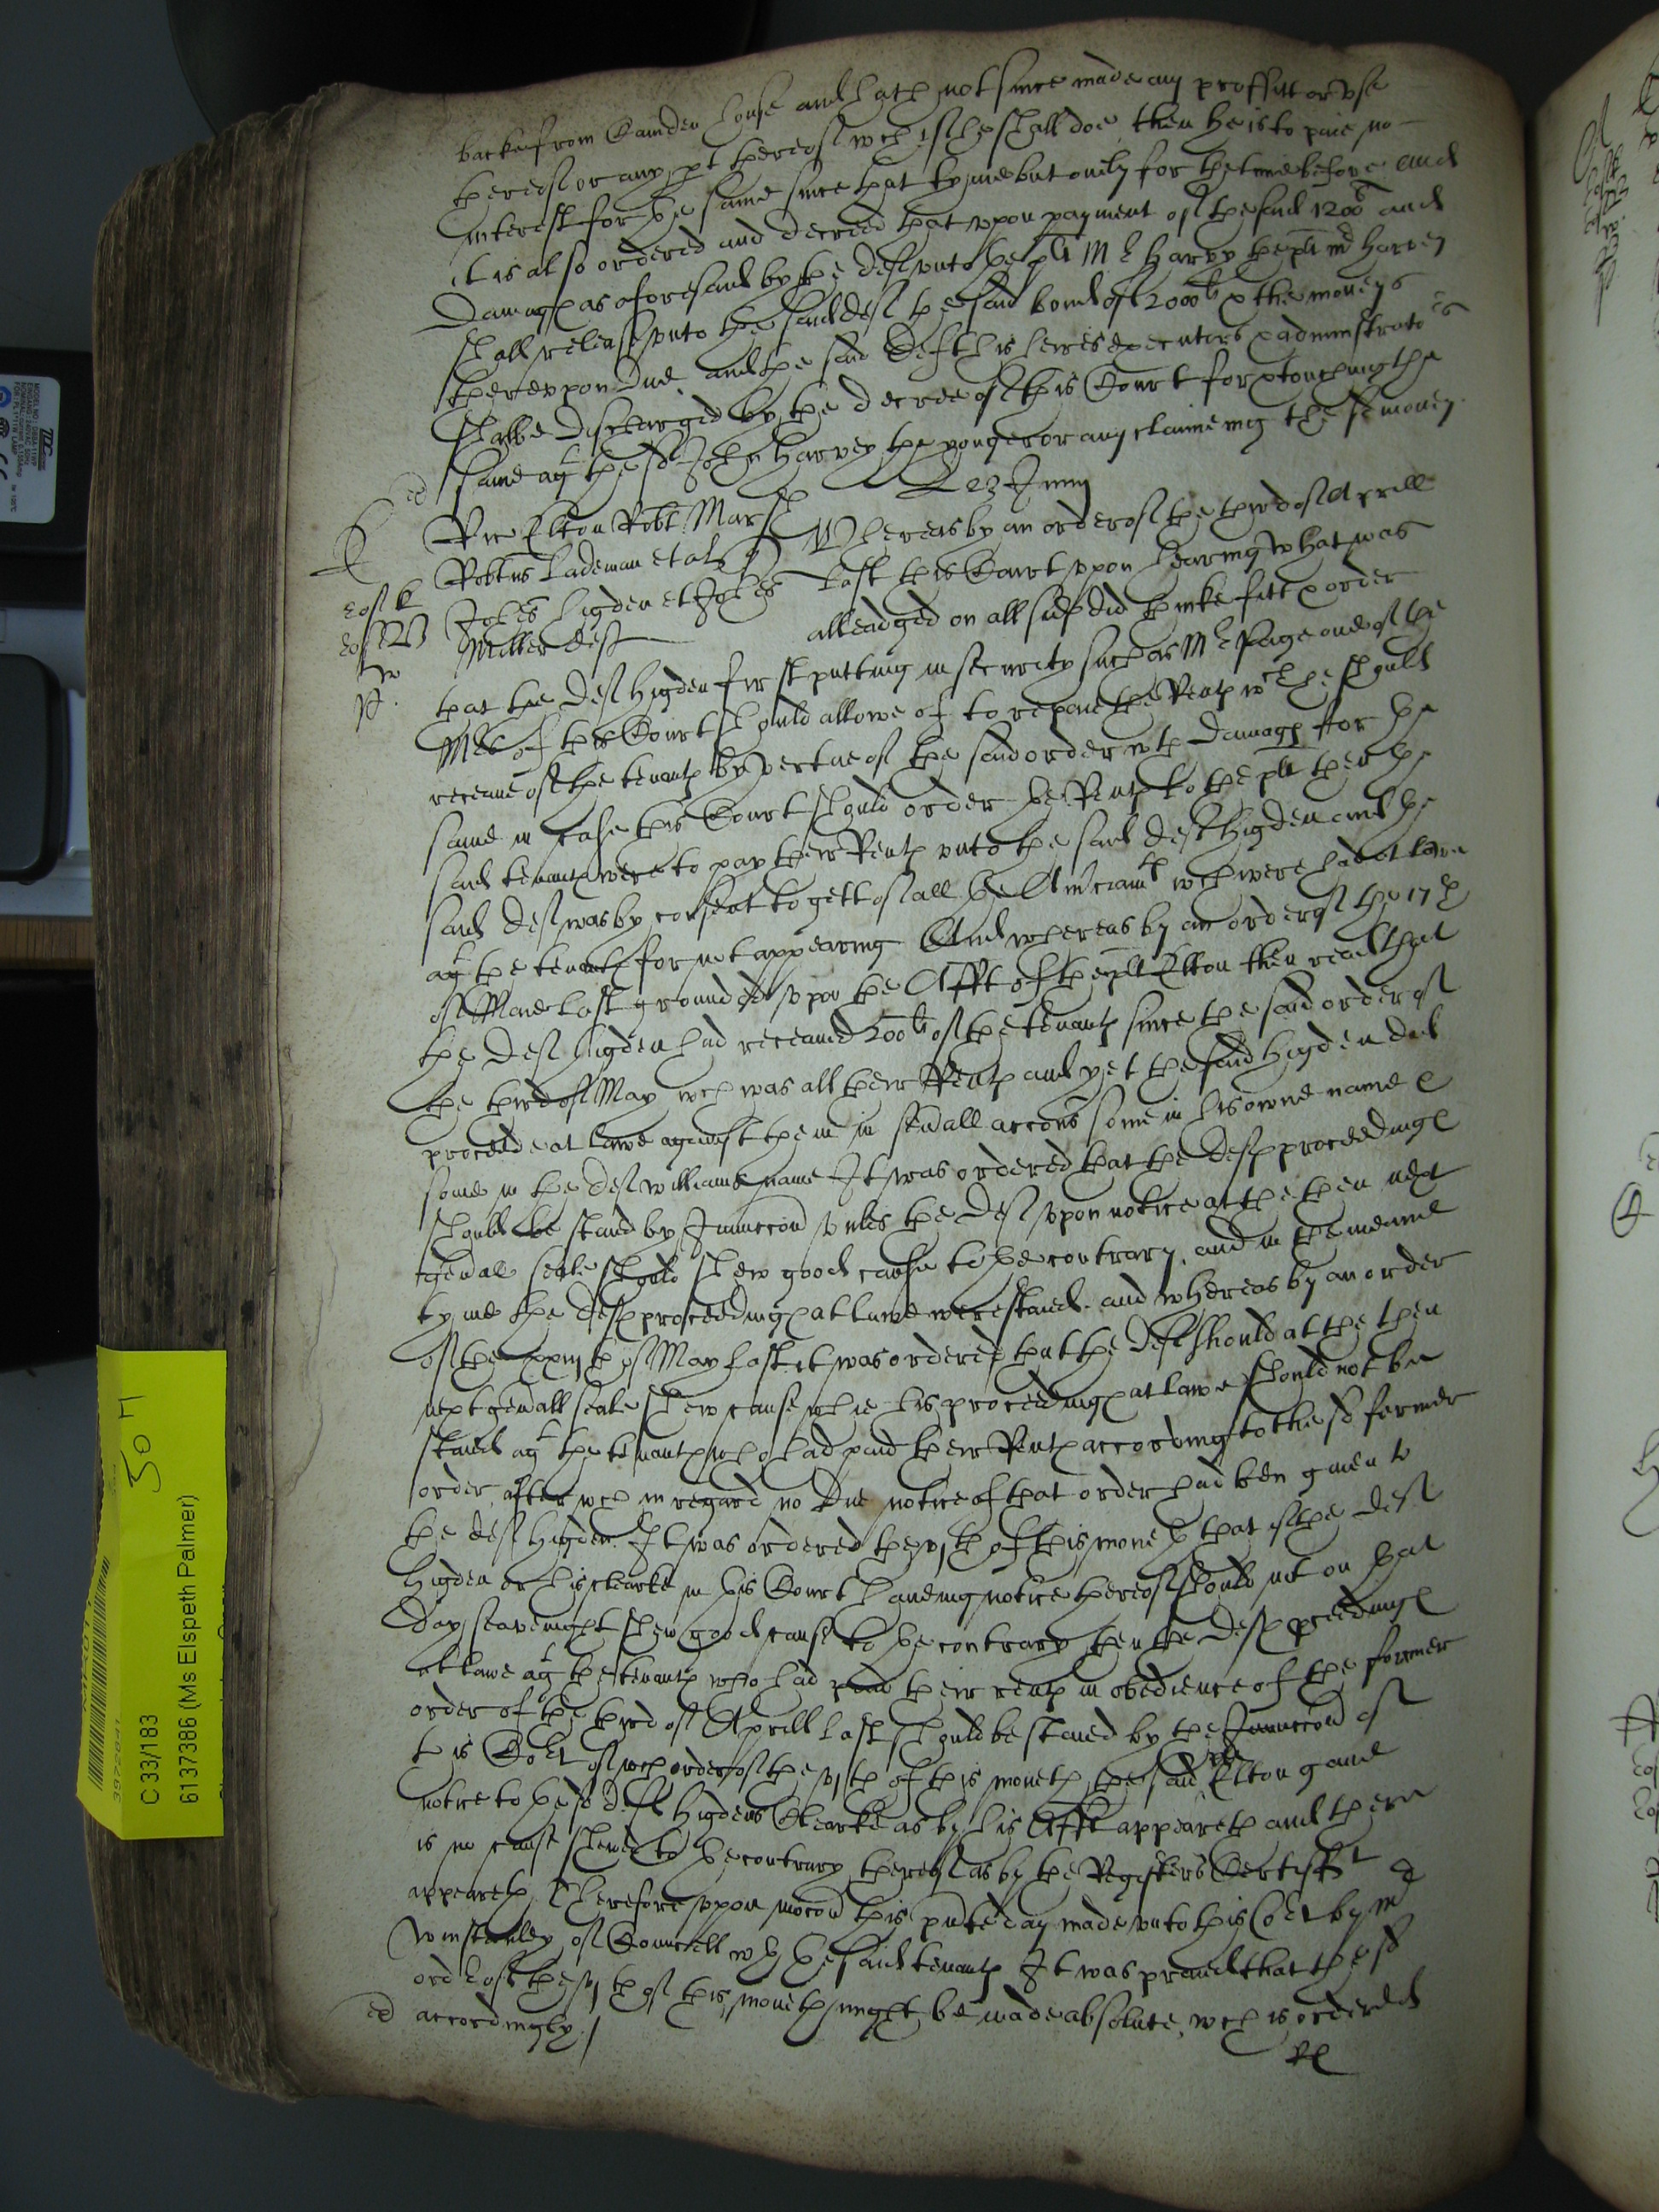 backe from Camden house and hath not since made any proffitt or use
thereof or any pt thereof wch if he shall doe then he is to paie no
interest for the same since that tyme but onely for the time before and
it is also ordered and decreed that upon payment of the said 1200li and
Damag as aforesaid by the deft unto the plt Mr Harvy the plt mr Harvey
shall release unto the said deft the said bond of 2000li & the moneys
thereupon due and the said Deft his heires executors & administrators
shalbe discharged by the decree of this Court for & touching the
same agt the sd John Harvey the yonger or any claimeing the sd money
23 Junij
Ric Elton Robt Marsh
Robtus Lademan et al
Johes Higden et Johes
Miller deft
Whereas by an order of the third of Aprill
last this Court upon hearing what was
alleadged on all sides did thinke fitt & order
that the deft Higden first putting in security such as Mr Page one of the
Mrs of this Court should allowe of to repaie the Rents wch he should
receave of the tenants by vertue of the said order wth Damages for the
same in case this Court should order the Rents to the plt then the
said tenants were to pay their Rents unto the said deft Higden and the
said deft was by consent to gett of all the Amciamts wch were had at lawe
agt the tenants for not appearing And whereas by an order of the 17th
of Maie last grounded upon the Afft of the plt Elton then read that
the deft Higden had receaved 200li of the tenants since the said order of
the third of May wch was all their Rents and yet the said Higden did
proceede at lawe against them in sevall accons some in his owne name &
some in the deft williams name It was ordered that the defts proceedings
should be staied by Iniunccion unles the deft upon notice at the then next
genall seale should shew good cause to the contrary and in the meane
tyme the defts proceedings at lawe were staied and whereas by an order
of the xxiijth of May last it was ordered that the deft should at the then
next genall seale shew cause whie his proceedings at lawe should not be
staied agt the tenants who had paid their Rents according to the sd former
order after wch in regard no due notice of that order had ben given to
the deft Higden It was ordered the vjth of this moneth that if the deft
Higden or his clearke in this Court haveing notice thereof should not on that
day seavenight shew good cause to the contrary then the defts pceedings
at lawe agt the tenants who had paid their rents in obedience of the former
order of the third of Aprill last should be staied by the Iniunccion of
this Cort of wch order of the vjth of this moneth the said plt Elton gave
notice to the sd deft Higdens Clearke as by his Afft appeareth and there
is no cause shewed to the contrary thereof as by the Registers Certificat
appeareth Therefore upon mocon this pnte day made unto this Cort by mr
Winstanley of Councell wth the said tenants It was praied that the sd
order of the vjth of this moneth might be made absolute wch is ordered
accordingly
C 33/183
6137386 (Ms Elspeth Palmer)